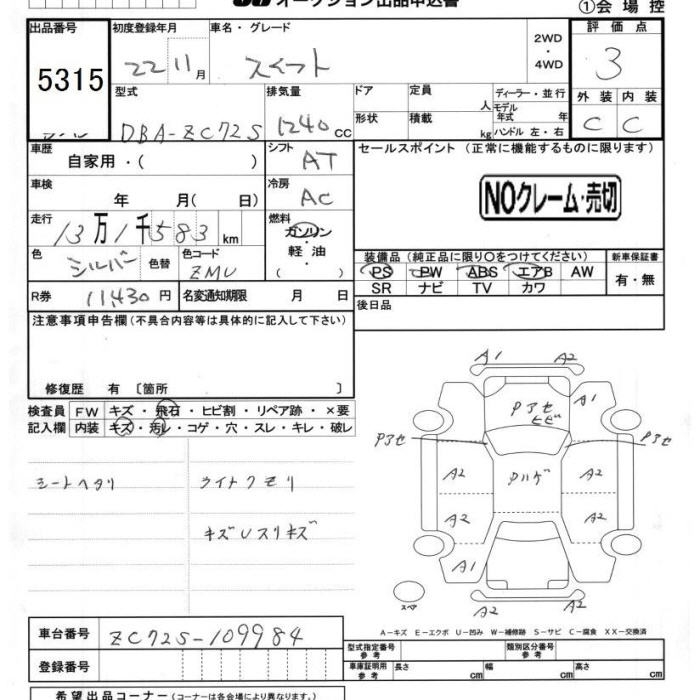 オークション出品申込書
①会場控
出品番号
5315
初度登録年月
22 11月
車名・グレード
スイフト
2WD
・
4WD
評価点
3
外装 内装
C C
型式
DBA-ZC72S
排気量
1240cc
ドア
形状
定員
人
積載
kg
ディーラー・並行
モデル
年式 年
ハンドル 左・右
車歴
自家用・( )
シフト
AT
セールスポイント (正常に機能するものに限ります)
NOクレーム・売切
車検
年 月( 日)
冷房
AC
走行
13万1千583km
燃料
ガソリン
・
軽油
( )
色
シルバー
色替
色コード
ZMU
装備品 (純正品に限り○をつけてください)
PS PW ABS エアB AW
SR ナビ TV カワ
新車保証書
有・無
R券
11,430円
名変通知期限 月 日
後日品
注意事項申告欄 (不具合内容等は具体的に記入して下さい)
修復歴 有 〔箇所 〕
検査員
記入欄
FW キズ・飛石・ヒビ割・リペア跡・×要
内装 キズ・汚レ・コゲ・穴・スレ・キレ・破レ
シートヘタリ
ライトクモリ
キズUスリキズ
A1 A2
Pアセ
ヒビ
Pアセ
Pアセ
A2 Pハゲ A2
A2 A2
A1
スペア
A2 A2
A-キズ E-エクボ U-凹み W-補修跡 S-サビ C-腐食 XX-交換済
車台番号
ZC72S-109984
登録番号
型式指定番号
参考
類別区分番号
参考
車庫証明用
参考
長さ cm
幅 cm
高さ cm
希望出品コーナー (コーナーは各会場により異なります。)